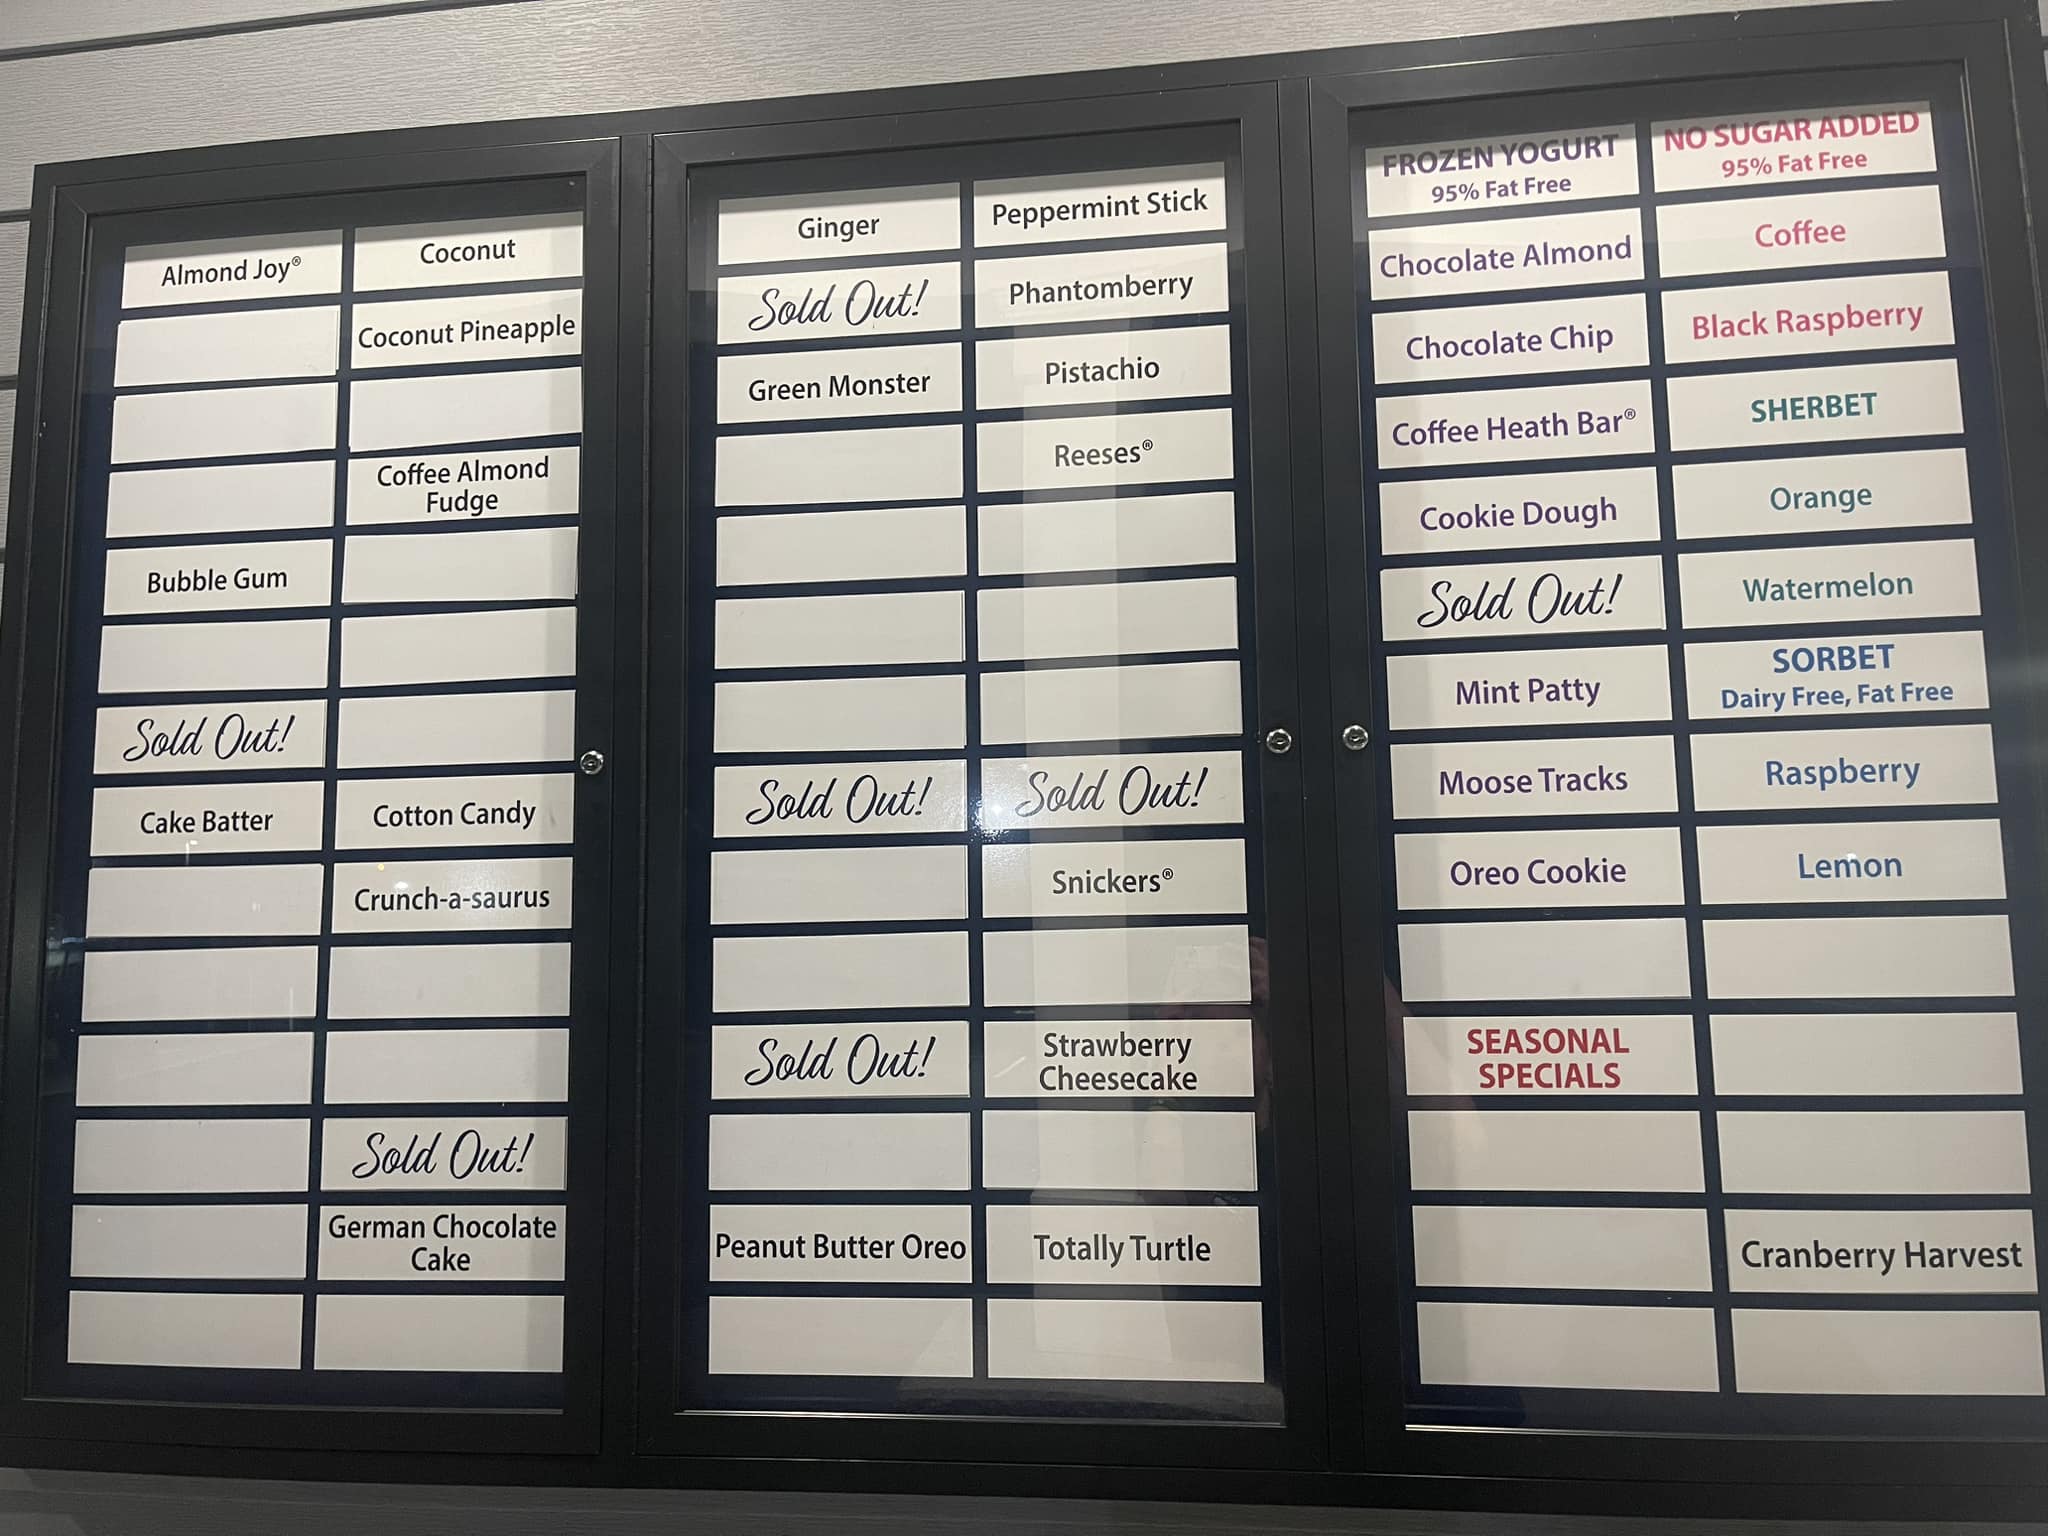 Almond Joy®
Bubble Gum
Sold Out!
Cake Batter
Coconut
Coconut Pineapple
Coffee Almond
Fudge
Cotton Candy
Crunch-a-saurus
Sold Out!
German Chocolate
Cake
Ginger
Sold Out!
Green Monster
Sold Out!
Sold Out!
Peanut Butter Oreo
Peppermint Stick
Phantomberry
Pistachio
Reeses®
Sold Out!
Snickers®
Strawberry
Cheesecake
Totally Turtle
FROZEN YOGURT
95% Fat Free
Chocolate Almond
Chocolate Chip
Coffee Heath Bar®
Cookie Dough
Sold Out!
Mint Patty
Moose Tracks
Oreo Cookie
SEASONAL
SPECIALS
NO SUGAR ADDED
95% Fat Free
Coffee
Black Raspberry
SHERBET
Orange
Watermelon
SORBET
Dairy Free, Fat Free
Raspberry
Lemon
Cranberry Harvest